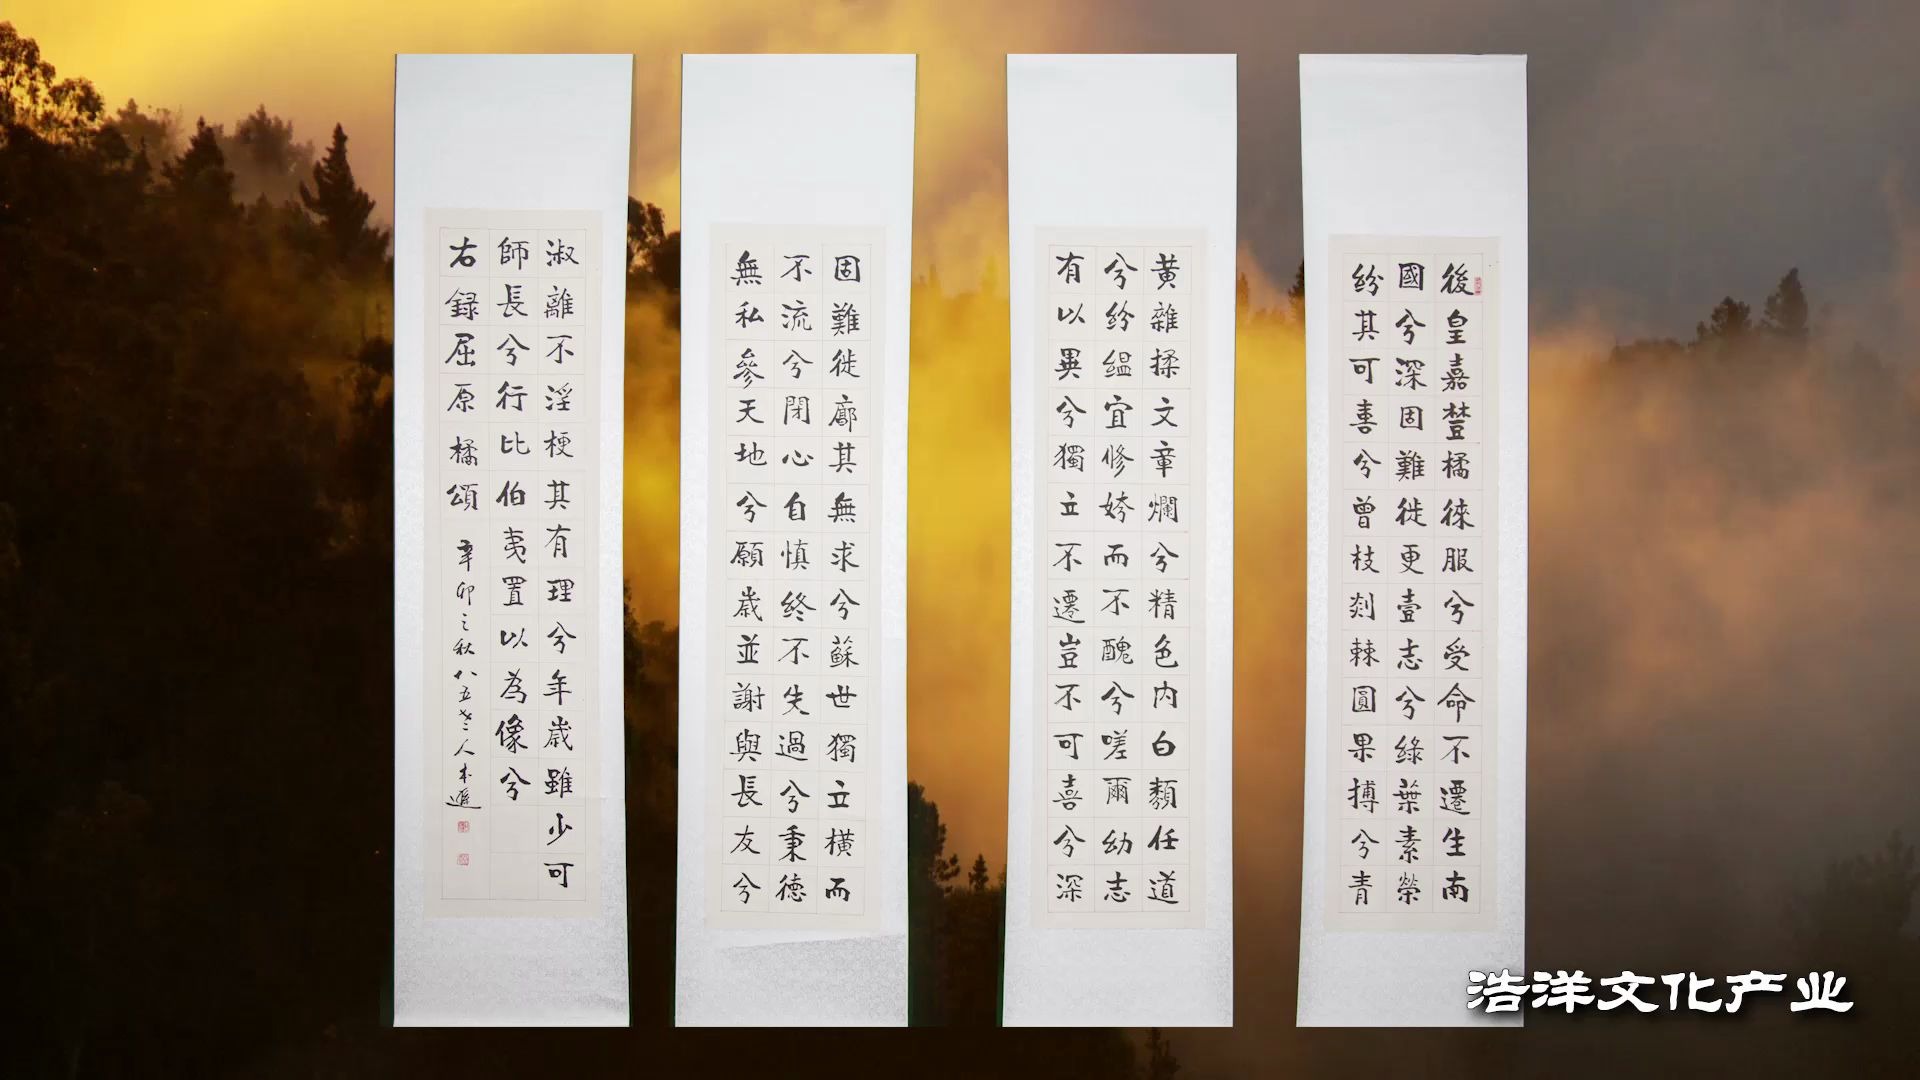 後皇嘉樹橘徠服兮受命不遷生南
國兮深固難徙更壹志兮綠葉素榮
紛其可喜兮曾枝剡棘圓果搏兮青
黃雜揉文章爛兮精色内白類任道
兮紛緼宜修姱而不醜兮嗟爾幼志
有以異兮獨立不遷豈不可喜兮深
固難徙廓其無求兮蘇世獨立橫而
不流兮閉心自慎終不失過兮秉德
無私參天地兮願歲並謝與長友兮
淑離不淫梗其有理兮年歲雖少可
師長兮行比伯夷置以為像兮
右録屈原橘頌 辛卯之秋八五老人本
浩洋文化产业